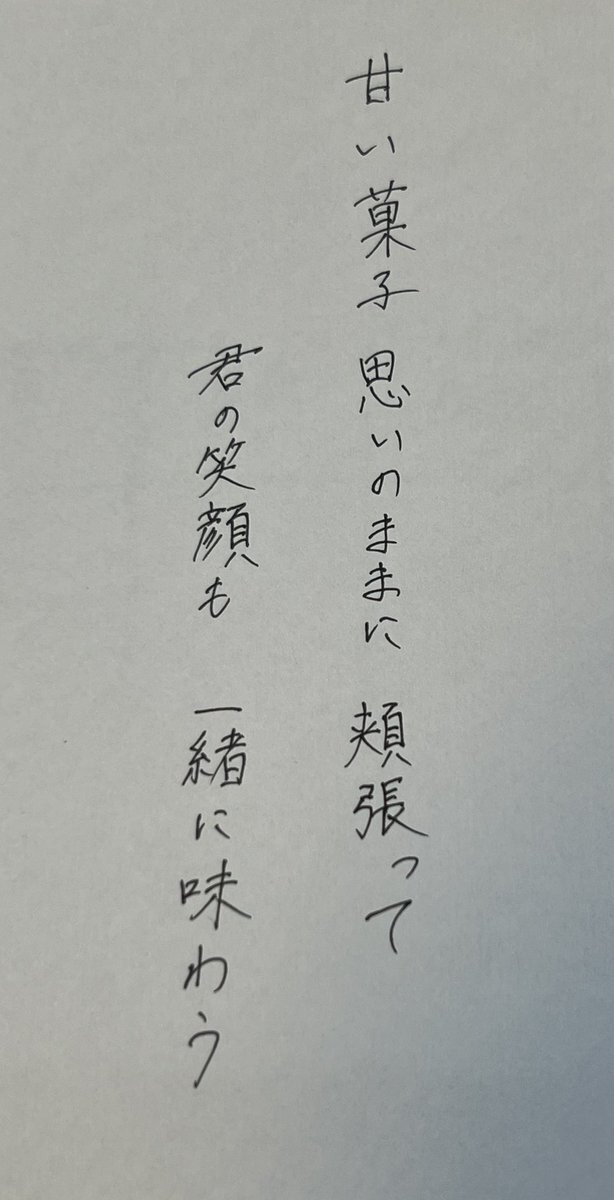 甘い菓子 思いのままに 頬張って
君の笑顔も 一緒に味わう